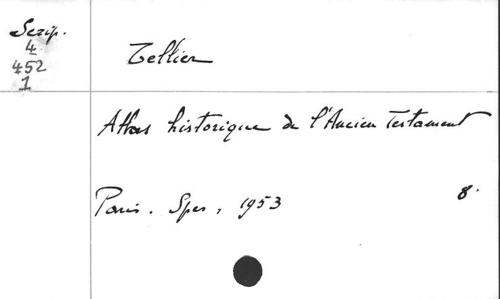 Scrip.
4
452
1
Tellier
Atlas historique de l'Ancien Testament
Paris. Spes, 1953 8.